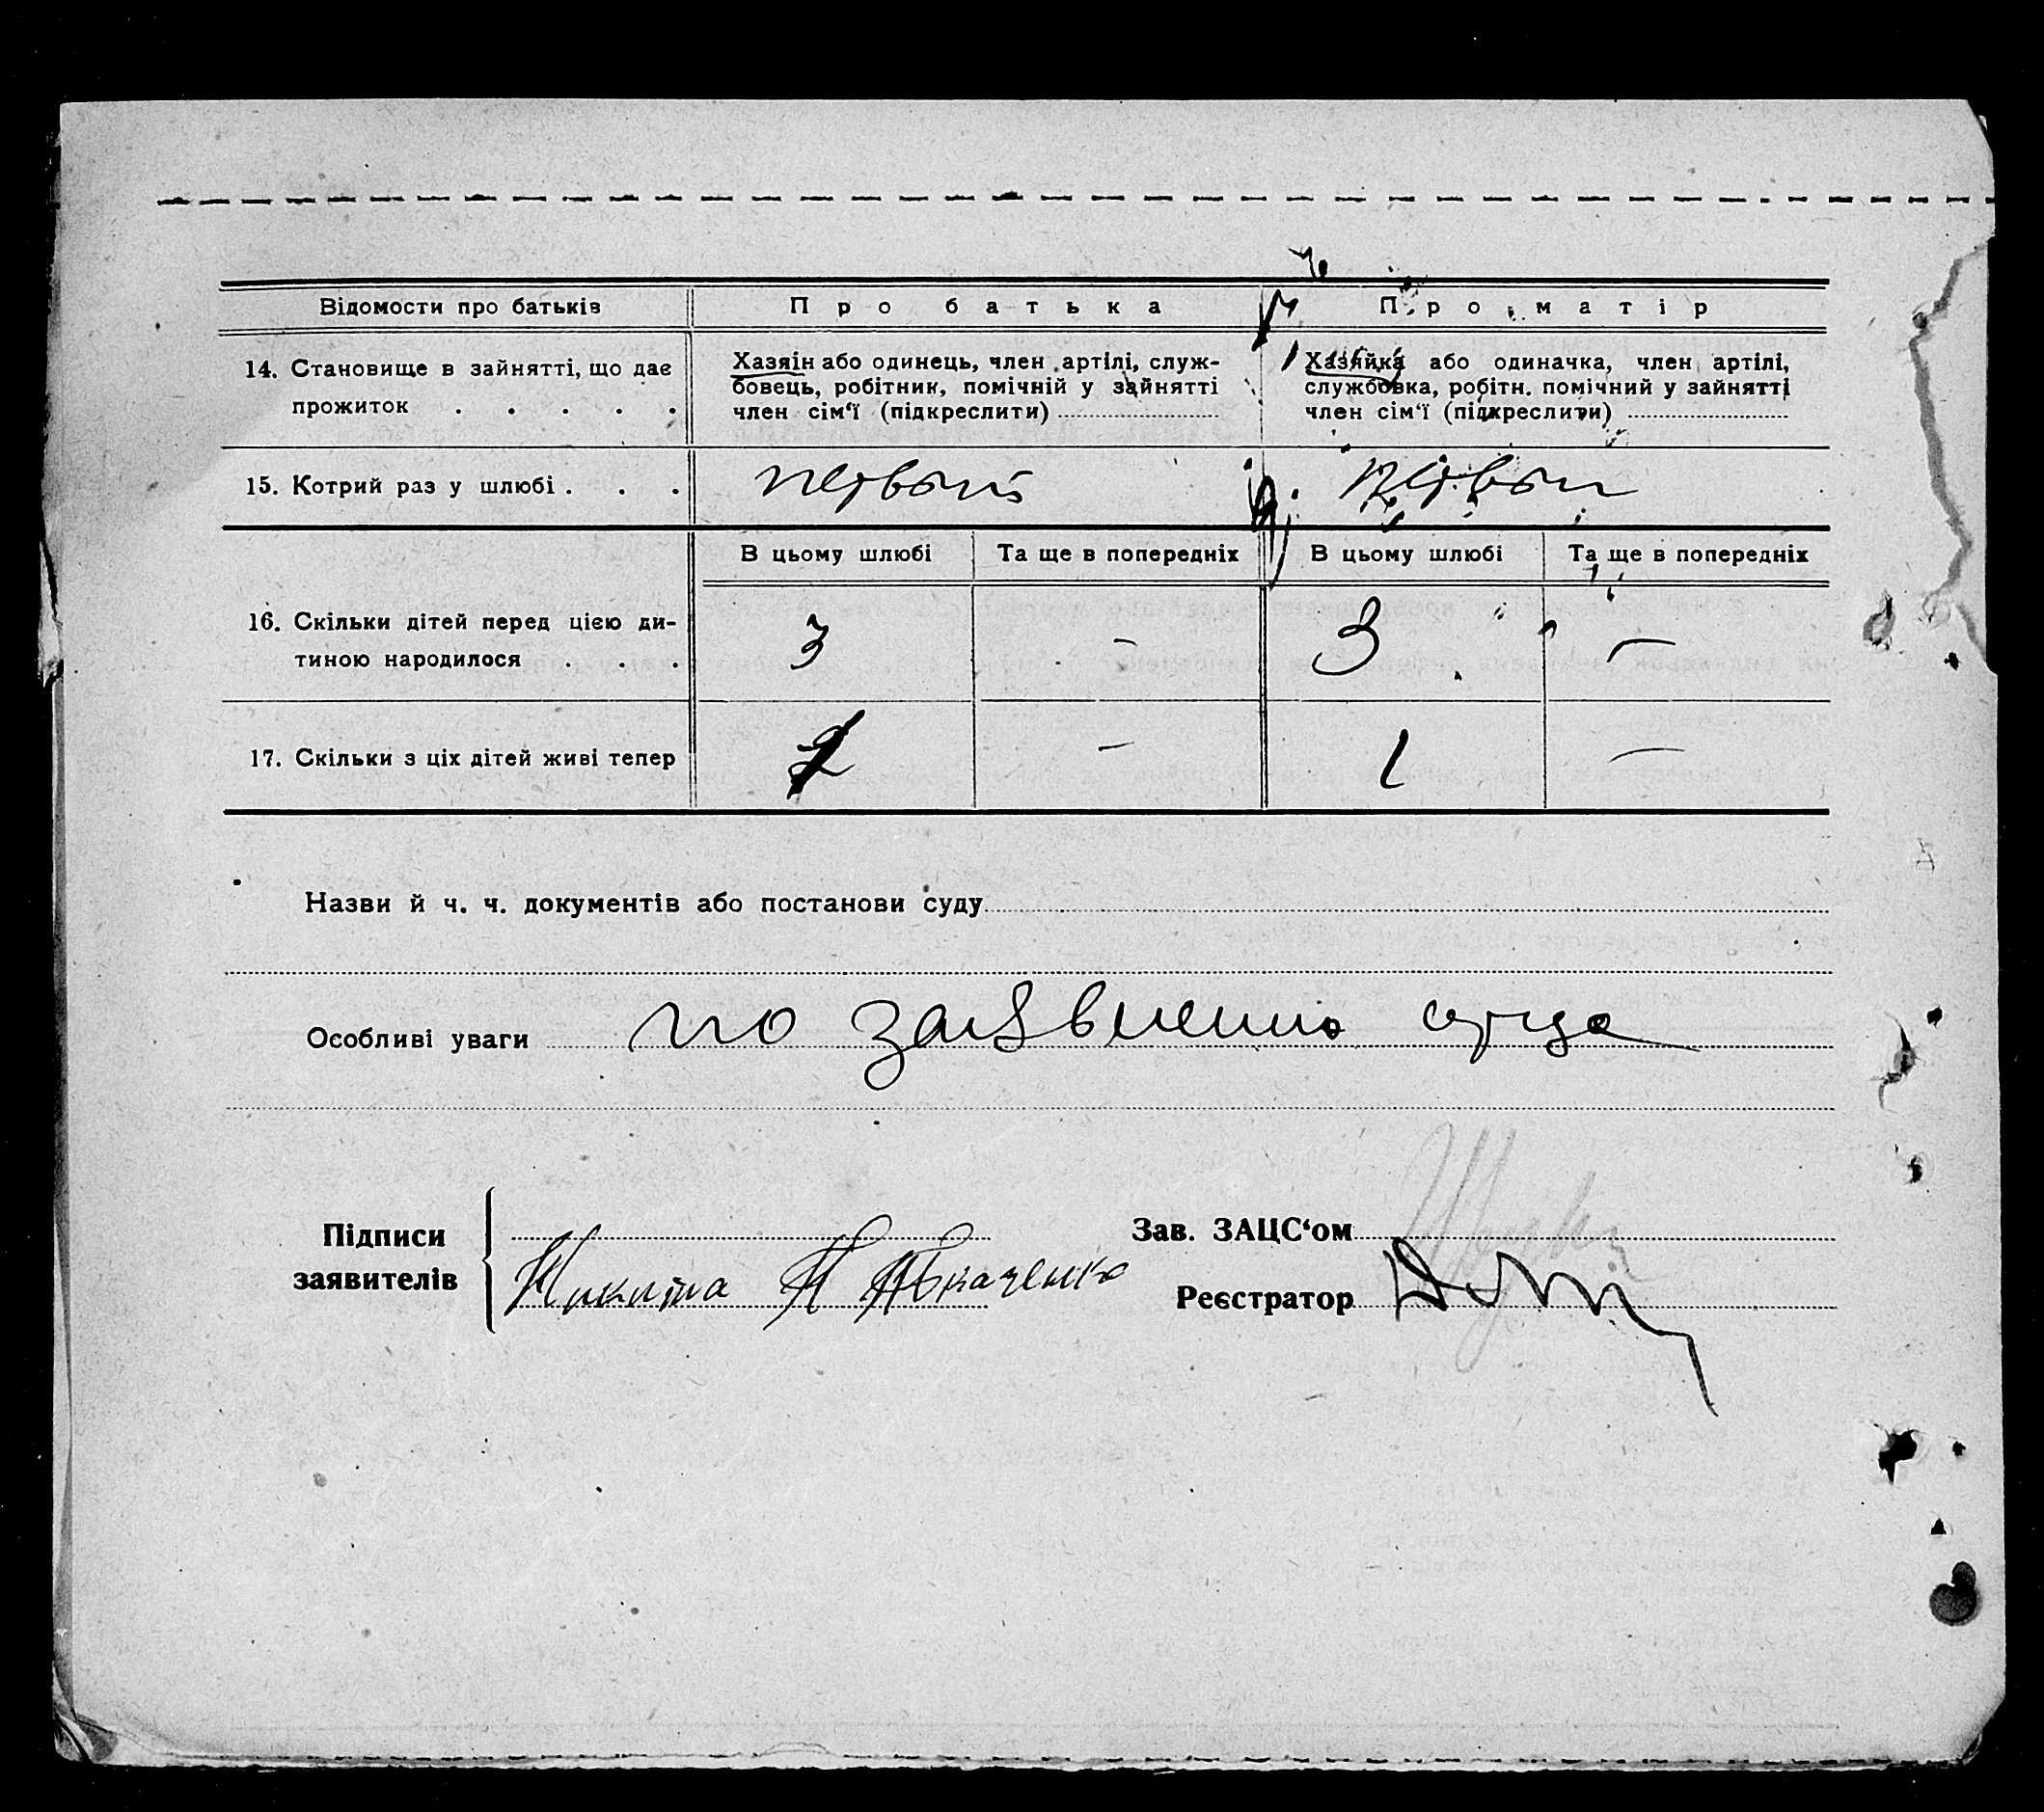 Відомости про батьків
Про батька
Про матір
14. Становище в зайнятті, що дає
прожиток . . . . .
Хазяїн або одинець, член артілі, служ-
бовець, робітник, помічній у зайнятті
член сім‘ї (підкреслити)
Хазяйка або одиначка, член артілі,
службовка, робітн. помічний у зайнятті
член сім‘ї (підкреслити)
15. Котрий раз у шлюбі . . .
первый
первый
В цьому шлюбі
Та ще в попередніх
В цьому шлюбі
Та ще в попередніх
16. Скільки дітей перед цією ди-
тиною народилося . . .
3
-
3
-
17. Скільки з ціх дітей живі тепер
-
1
-
Назви й ч. ч. документів або постанови суду
Особливі уваги по заявлению отца
Підписи
заявителів
Никита
Зав. ЗАЦС‘ом
Реєстратор